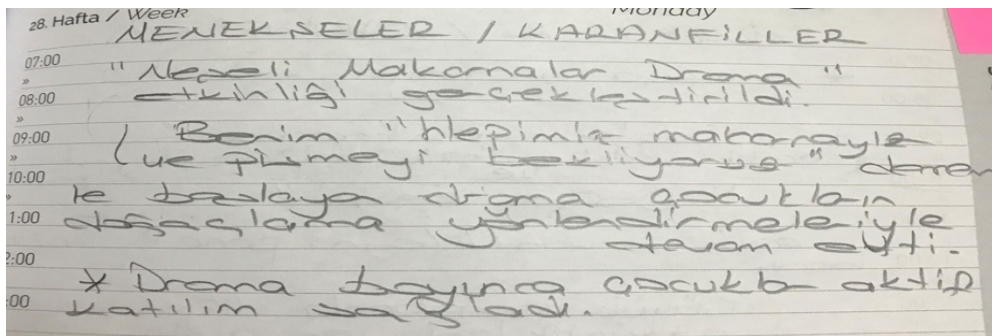 28. Hafta / Week
Monday
MENEKSELER / KARANFİLLER
07:00
"Neşeli Makarnalar Drama"
08:00
etkinliği gerçekleştirildi.
09:00
( Benim "hepimiz makarnayız
ve pişmeyi bekliyoruz" demem
10:00
le başlayan drama çocukların
1:00
doğaçlama yönlendirmeleriyle
devam etti.
2:00
* Drama boyunca çocuklar aktif
:00
katılım sağladı.